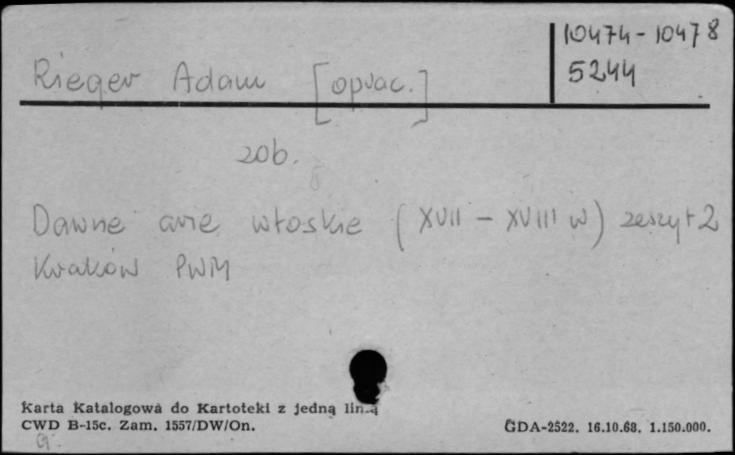 10474-10478
Rieger Adam [oprac.]
5244
zob.
Dawne arie włoskie (XVII - XVIII w) zeszyt 2
Kraków PWM
Karta Katalogowa do Kartoteki z jedną linią
CWD B-15c. Zam. 1557/DW/On.
GDA-2522. 16.10.68. 1.150.000.